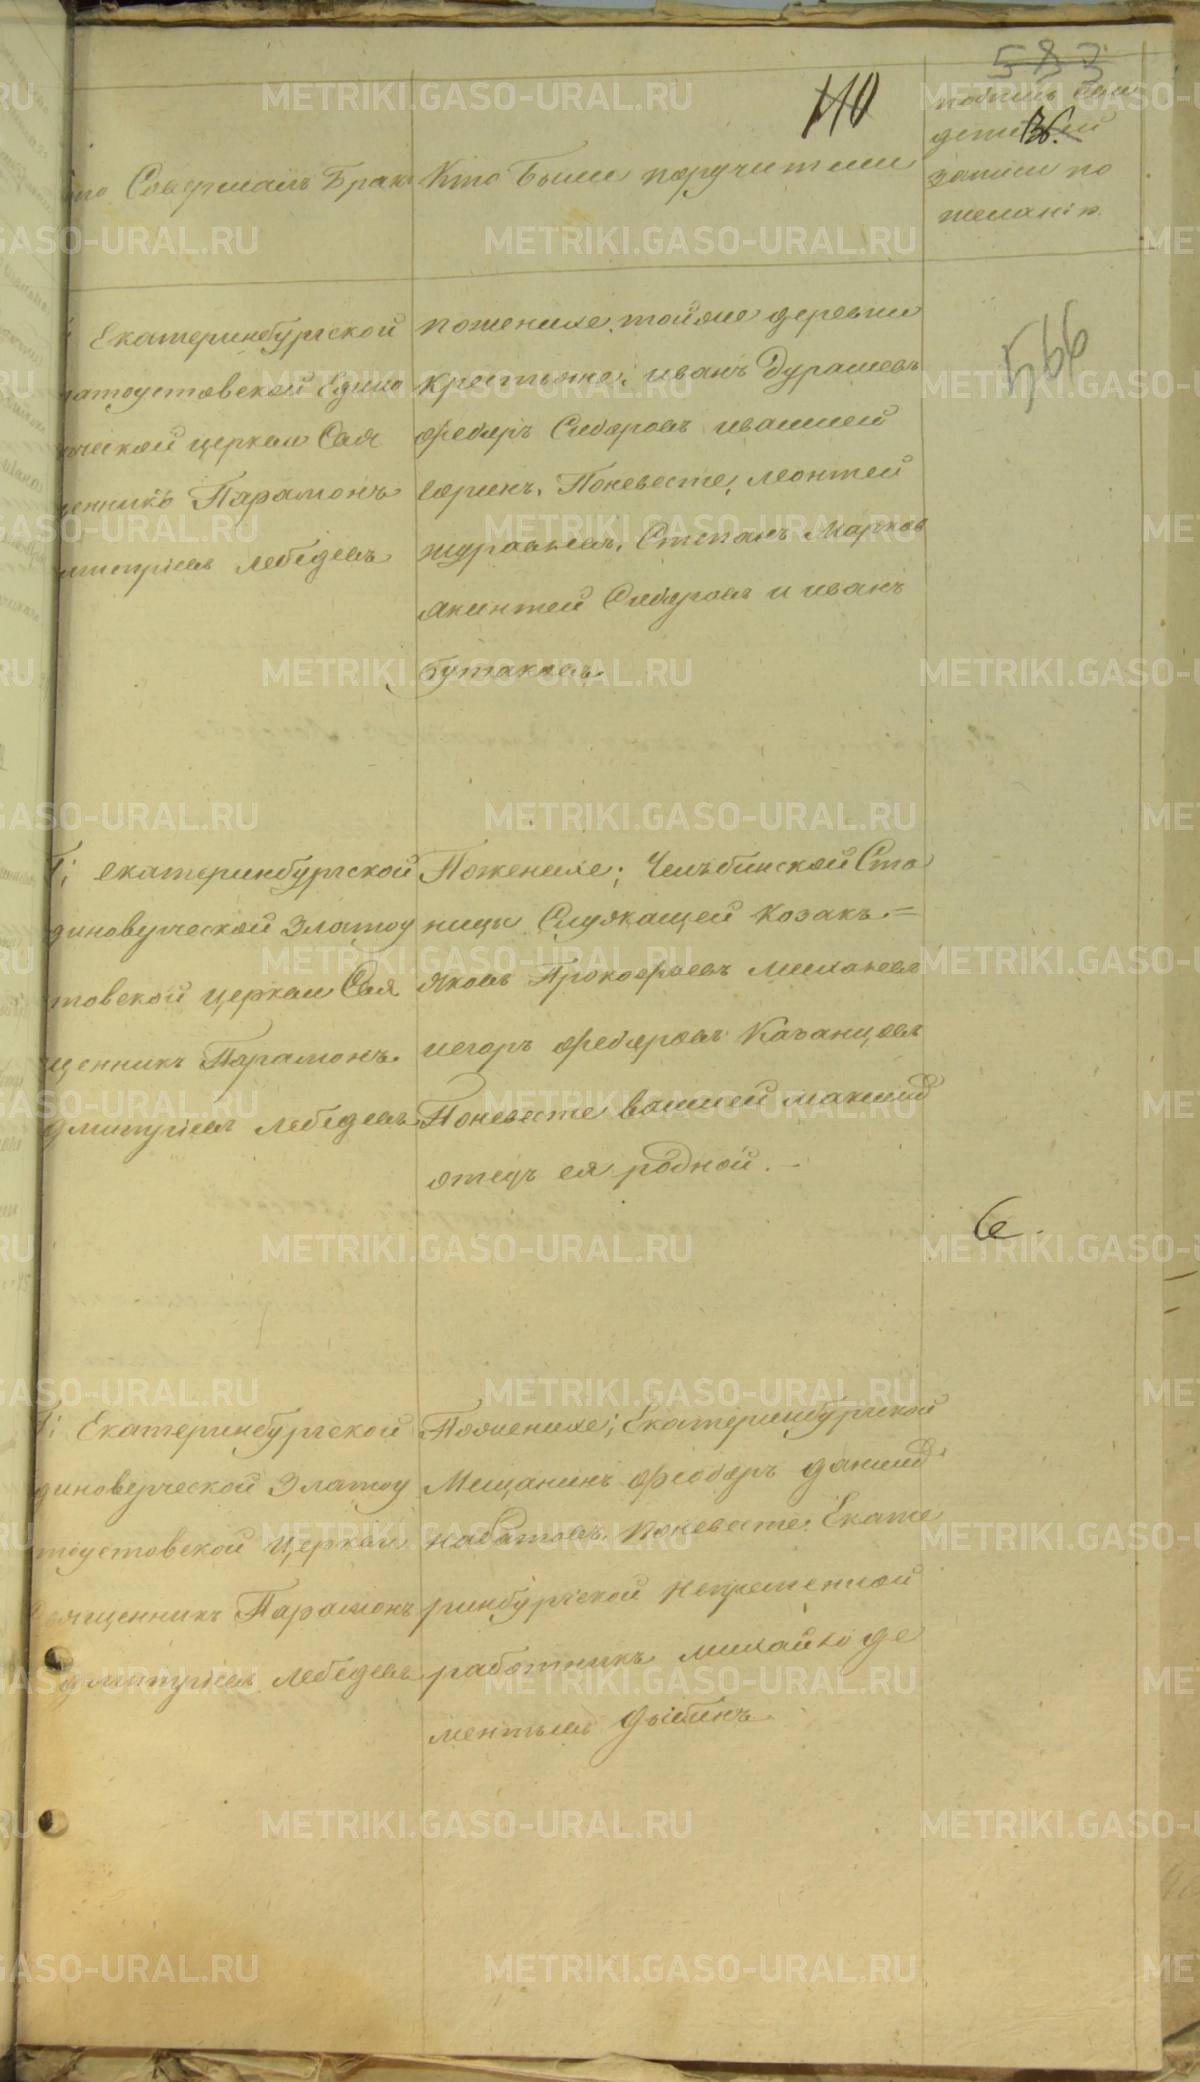 583
110
36.
Кто Совершалъ Бракъ
Кто Были поручители
подпись
записи по
желанію.
566
Екатеринбургской
латоустовской Едино
рческой церкви Свя
щенникъ Парамонъ
митріевъ лебедевъ
поженихе тойже деревни
крестьяне; иванъ Дурашевъ
федоръ Сидоровъ
Поневесте, леонтей
журавлевъ, Степанъ Марков
Сидоровъ и иванъ
бутаковъ.
Г: екатеринбургской
диноверческой Златоу
товской церкви Свя
щенникъ Парамонъ.
дмитріевъ лебедевъ
Поженихе; Челябинской Ста
ницы Служащей козакъ =
яковъ Прокофьевъ
иегоръ федоровъ Казанцовъ
Поневесте
отецъ ея родной. -
6.
Г: Екатеринбургской
диноверческой Златоу
тоустовской церкви
священникъ Парамонъ
дмитріевъ лебедевъ
Поженихе; Екатеринбургской
Мещанинъ феодоръ данил
набатовъ. поневесте: Екате
ринбургской непременной
работникъ михайло де
ментьевъ
METRIKI.GASO-URAL.RU